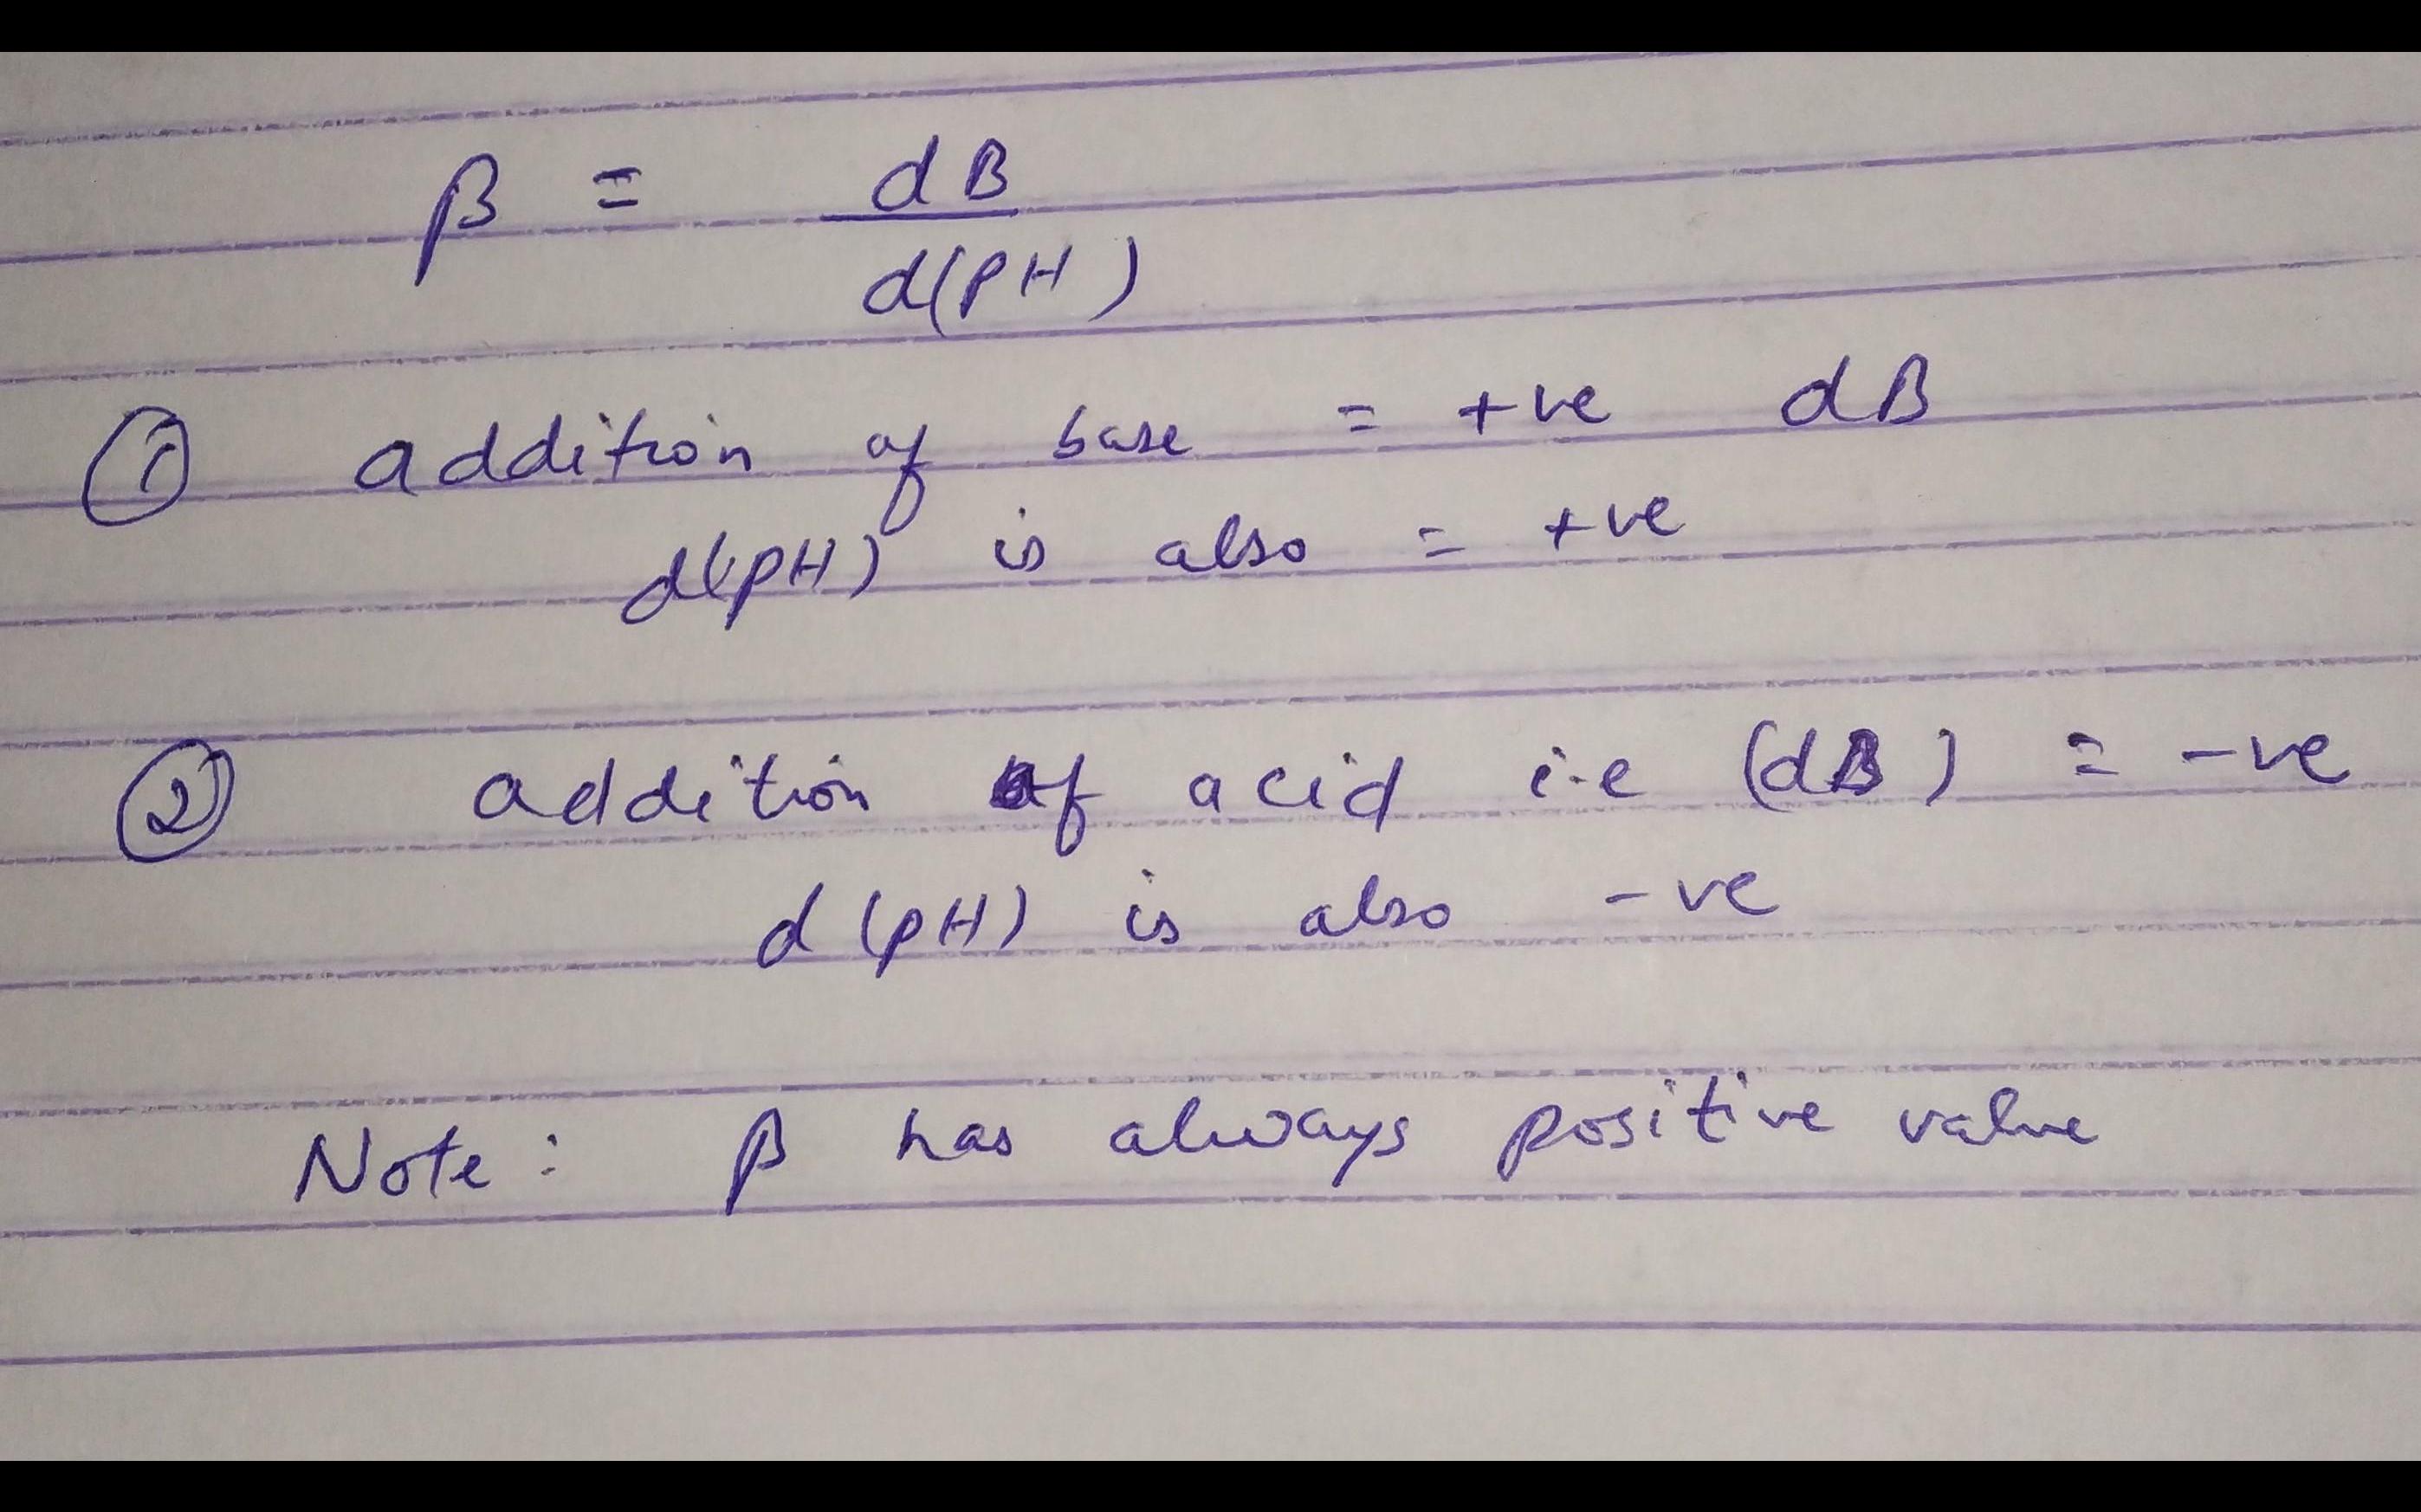 β = dB
d(PH)
① addition of base = +ve dB
d(pH) is also = +ve
② addition of acid i.e (dB) = -ve
d(pH) is also -ve
Note: β has always positive value